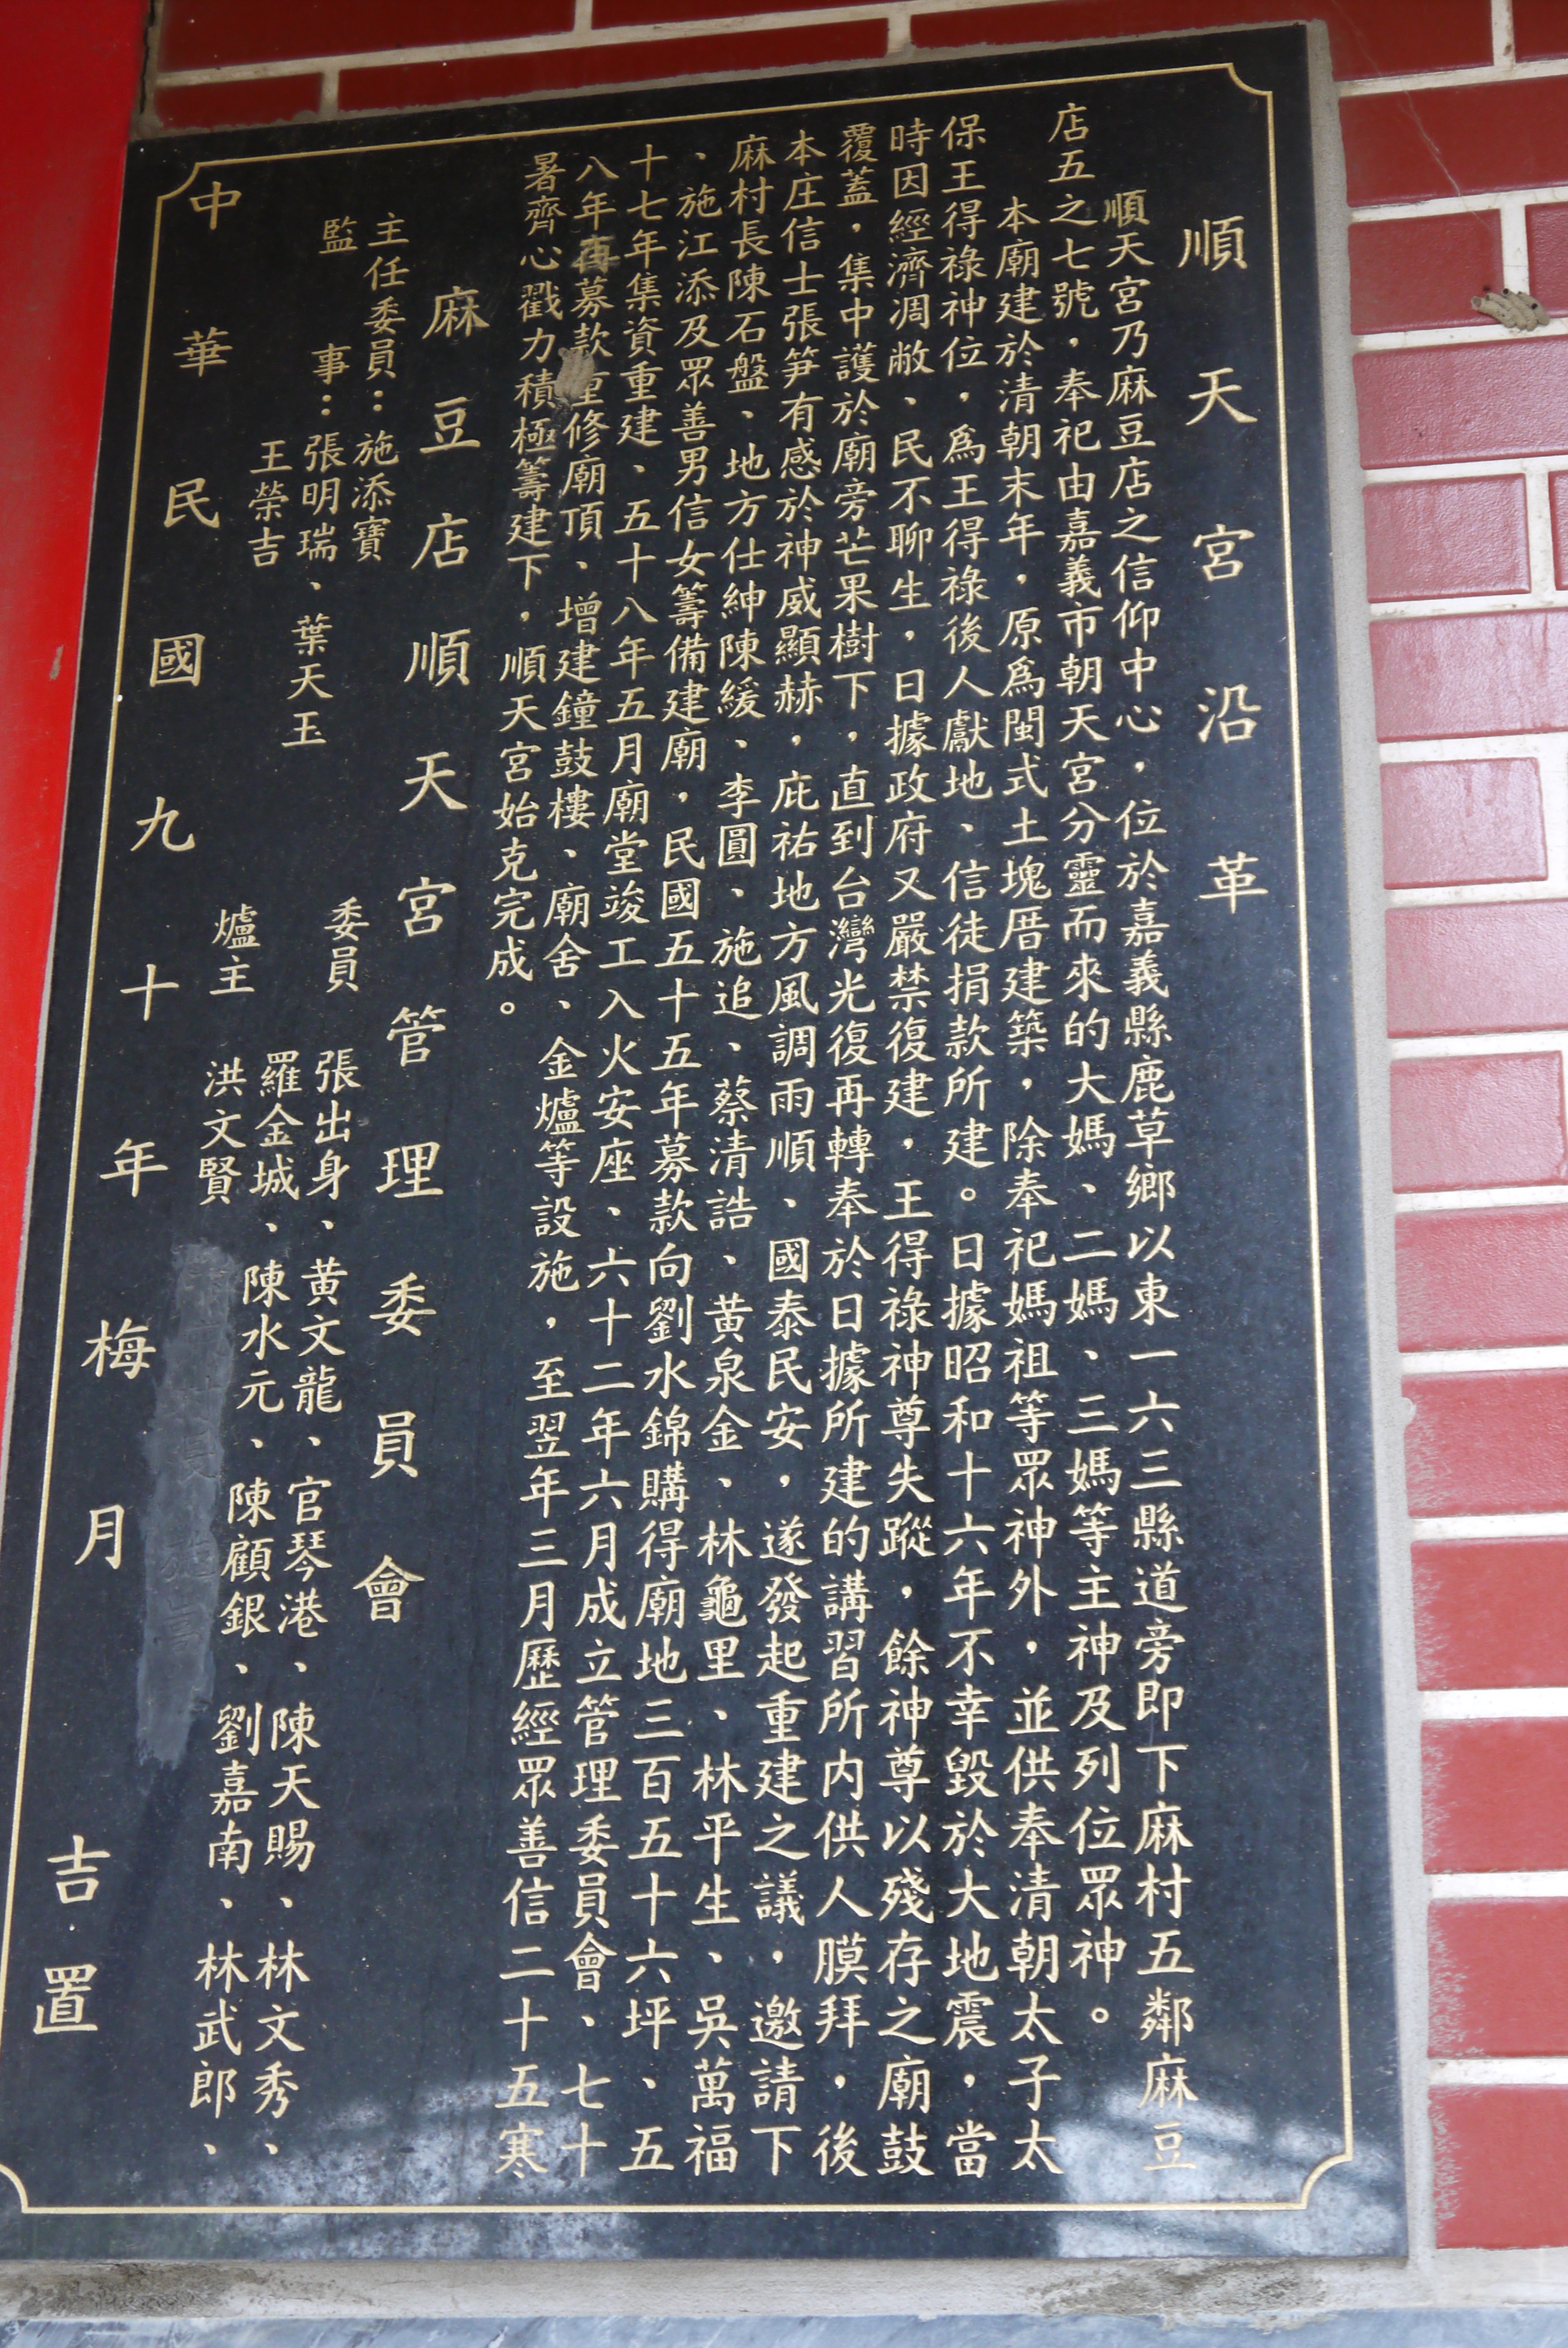 順天宮沿革
順天宮乃麻豆店之信仰中心，位於嘉義縣鹿草鄉以東一六三縣道旁即下麻村五鄰麻豆
店五之七號，奉祀由嘉義市朝天宮分靈而來的大媽、二媽、三媽等主神及列位眾神。
本廟建於清朝末年，原爲閩式土塊厝建築，除奉祀媽祖等眾神外，並供奉清朝太子太
保王得祿神位，爲王得祿後人獻地、信徒捐款所建。日據昭和十六年不幸毀於大地震，當
時因經濟凋敝、民不聊生，日據政府又嚴禁復建，王得祿神尊失蹤，餘神尊以殘存之廟鼓
覆蓋，集中護於廟旁芒果樹下，直到台灣光復再轉奉於日據所建的講習所内供人膜拜，後
本庄信士張笋有感於神威顯赫，庇祐地方風調雨順、國泰民安，遂發起重建之議，邀請下
麻村長陳石盤、地方仕紳陳緩、李圓、施追、蔡清誥、黃泉金、林龜里、林平生、吳萬福
、施江添及眾善男信女籌備建廟，民國五十五年募款向劉水錦購得廟地三百五十六坪、五
十七年集資重建、五十八年五月廟堂竣工入火安座、六十二年六月成立管理委員會、七十
八年再募款重修廟頂、增建鐘鼓樓、廟舍、金爐等設施，至翌年三月歷經眾善信二十五寒
暑齊心戮力積極籌建下，順天宮始克完成。
麻豆店順天宮管理委員會
主任委員：施添寶
監事：張明瑞、葉天玉
王榮吉
委員 張出身、黃文龍、官琴港、陳天賜、林文秀、
羅金城、陳水元、陳顧銀、劉嘉南、林武郎、
爐主 洪文賢
中華民國九十年梅月吉置